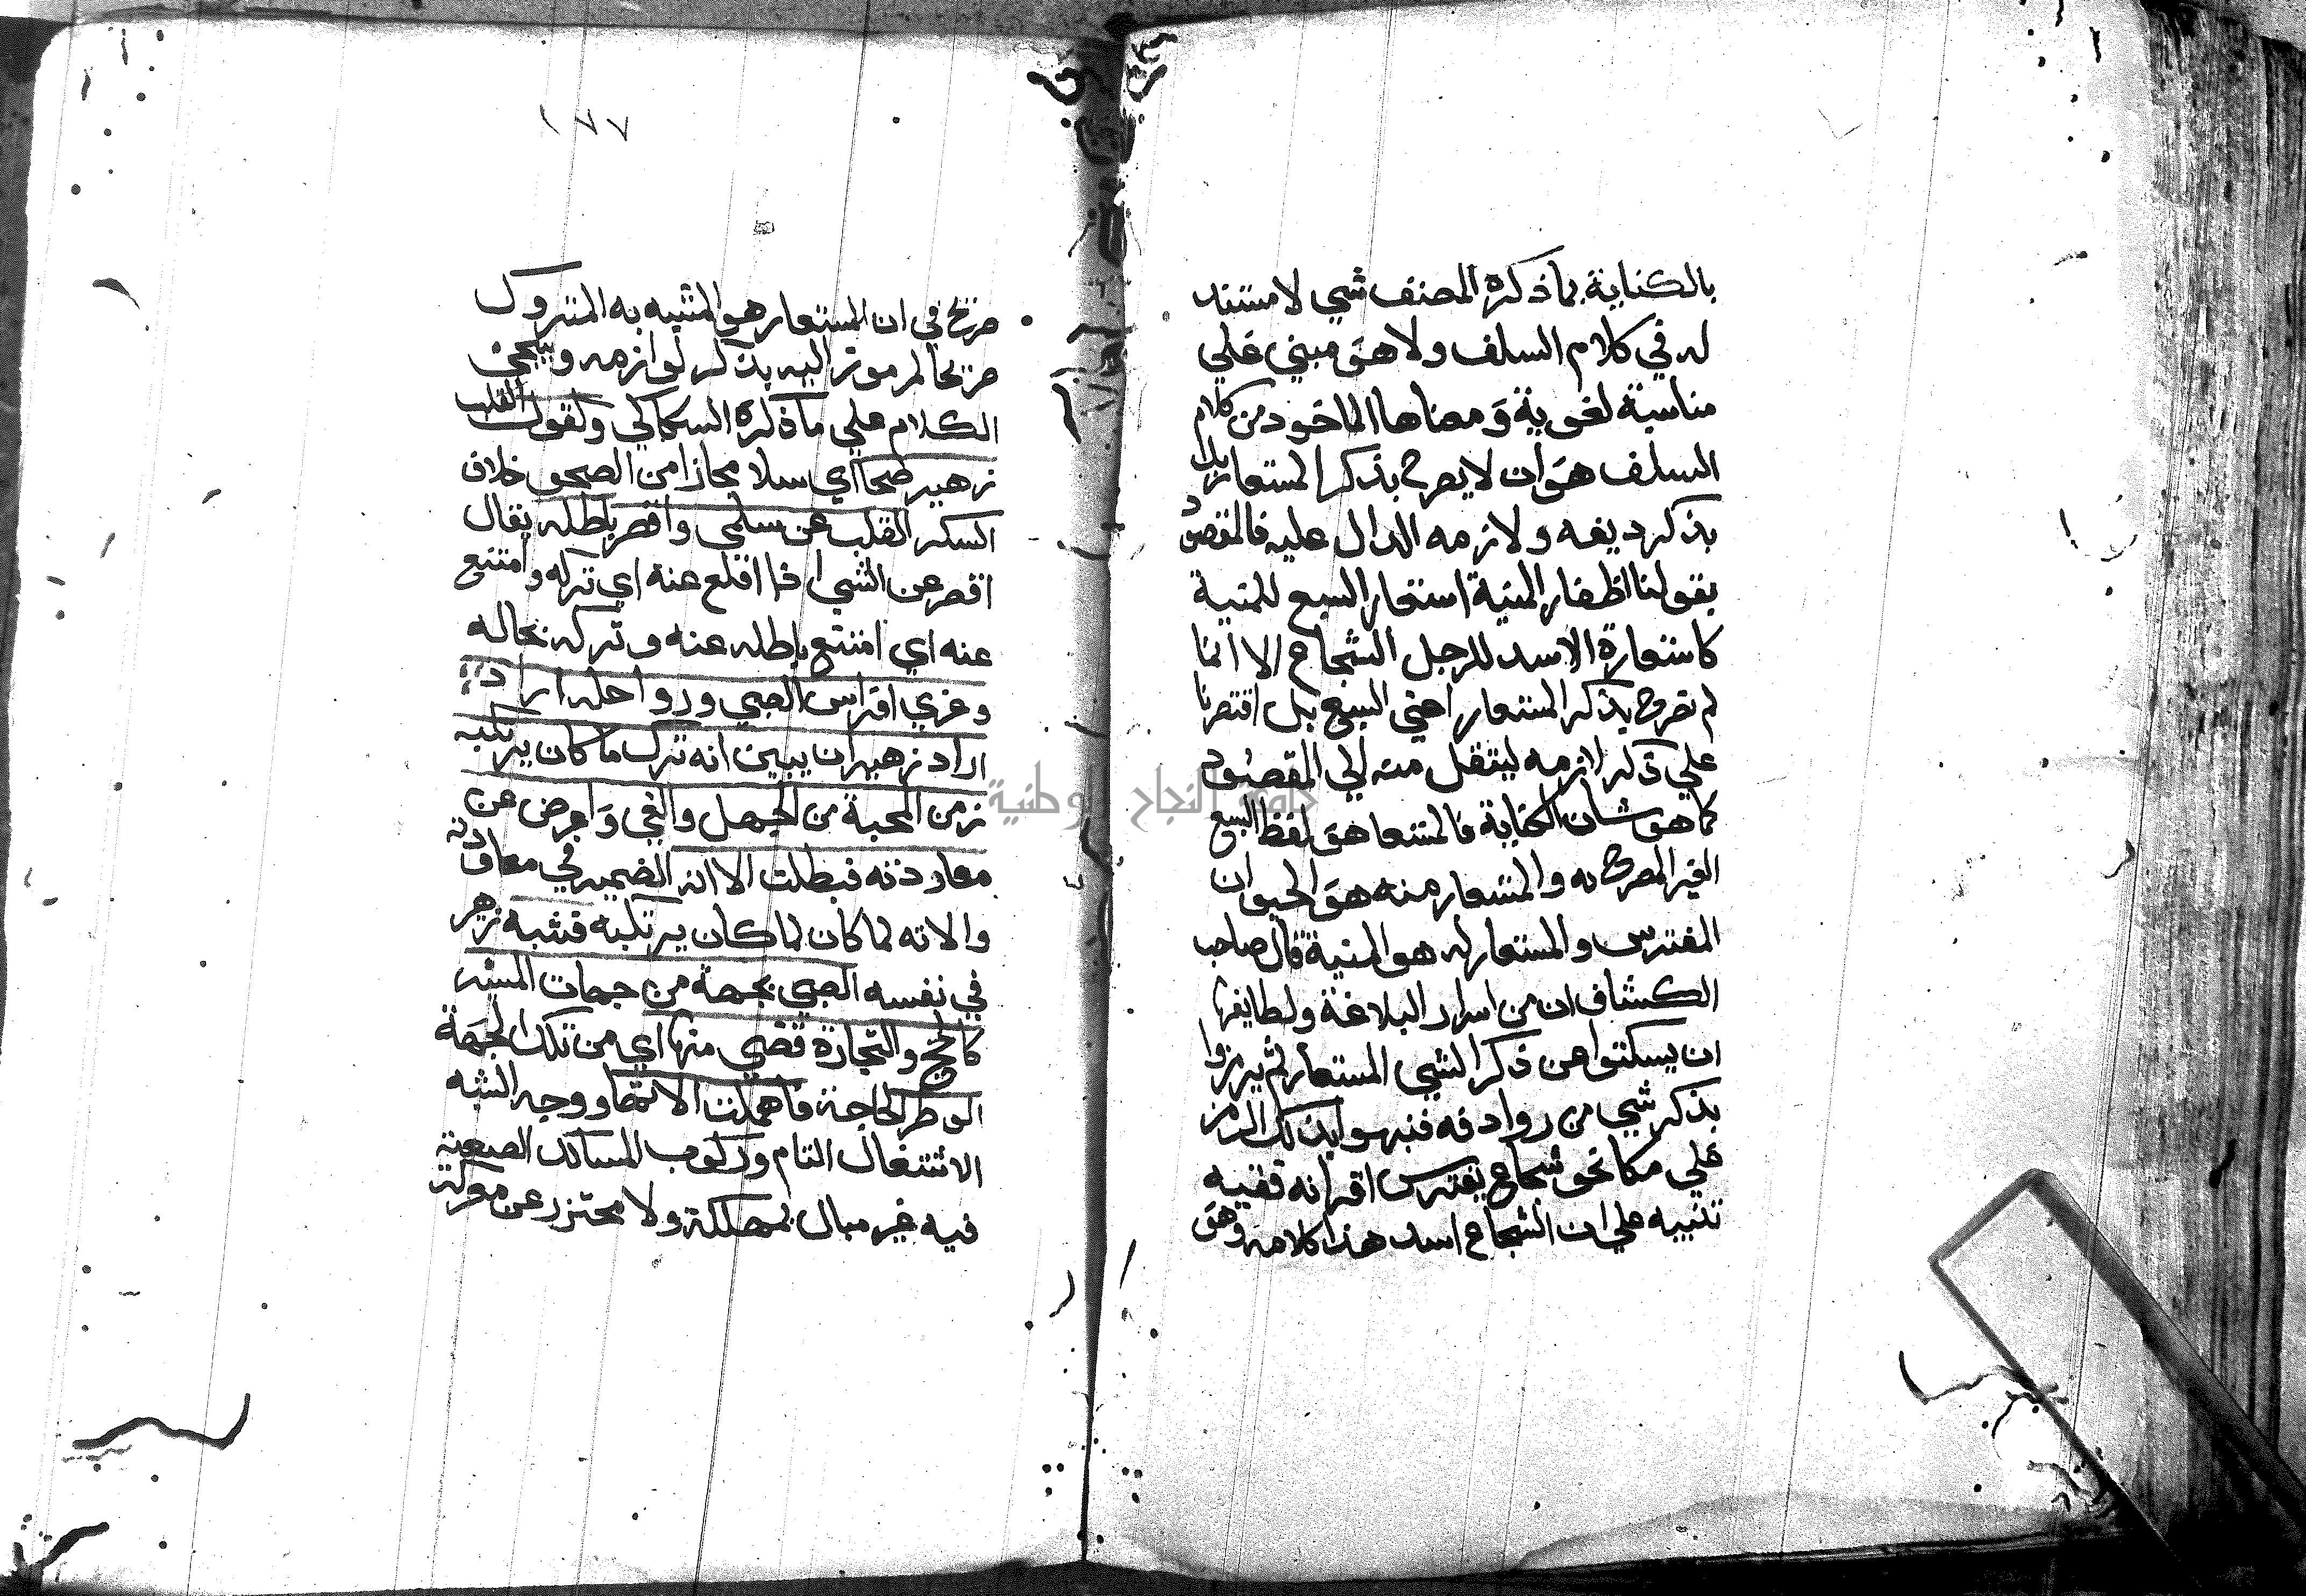 بالكناية بما ذكره المصنف شي لا مستند
له في كلام السلف ولا هو مبني علي
مناسبة لغوية ومعناها الماخود من كلام
السلف هو ان لا يصرح بذكر المستعار بل
بذكر رديفه ولازمه الدال عليه فالمقصود
بقولنا اظفار المنية استعار السبع للمنية
كاستعارة الاسد للرجل الشجاع الا اننا
لم نصرح بذكر المستعار اعني السبع بل اقتصرنا
علي ذكر لازمه لينتقل منه الي المقصود
كما هو شان الكناية فالمستعا هو لفظ السبع
الغير المصرح به والمستعار منه هو الحيوان
المفترس والمستعار له هو المنية قال صاحب
الكشاف ان من اسرار البلاغة ولطايفها
ان يسكتوا عن ذكر الشي المستعار ثم يرمزوا
بذكر شي من روادفه فنبهوا بذلك الرمز
علي مكا نحو شجاع يفترس اقرانه ففيه
تنبيه علي ان الشجاع اسد هذا كلامه وهو
١٧٧
صريح في ان المستعار هو المشبه به المتروك
صريحا المرموز اليه بذكر لوازمه وسيجئ
الكلام علي ما ذكره السكاكي وكقول
زهير صحا اي سلا مجازا من الصحو خلاف
السكر القلب عن سلمي واقصر باطله يقال
اقصر عن الشي اذا اقلع عنه اي تركه وامتنع
عنه اي امتنع باطله عنه وتركه بحاله
وعري افراس الصبي ورواحله اراد
اراد زهير ان يبين انه ترك ما كان يرتكبه
زمن المحبة من الجهل والغي واعرض عن
معاودته فبطلت الا انه الضمير في معاودته
والاته لما كان لما كان يرتكبه فشبه زهير
في نفسه الصبي بجهة من جهات المسير
كالحج والتجارة قضي منها اي من تلك الجهة
الوطر الحاجة فاهملت الاتها ووجه الشبه
الاشتغال التام وركوب المسالك الصعبة
فيه غير مبال بمهلكة ولا محترز عن معركة
جامعة النجاح الوطنية